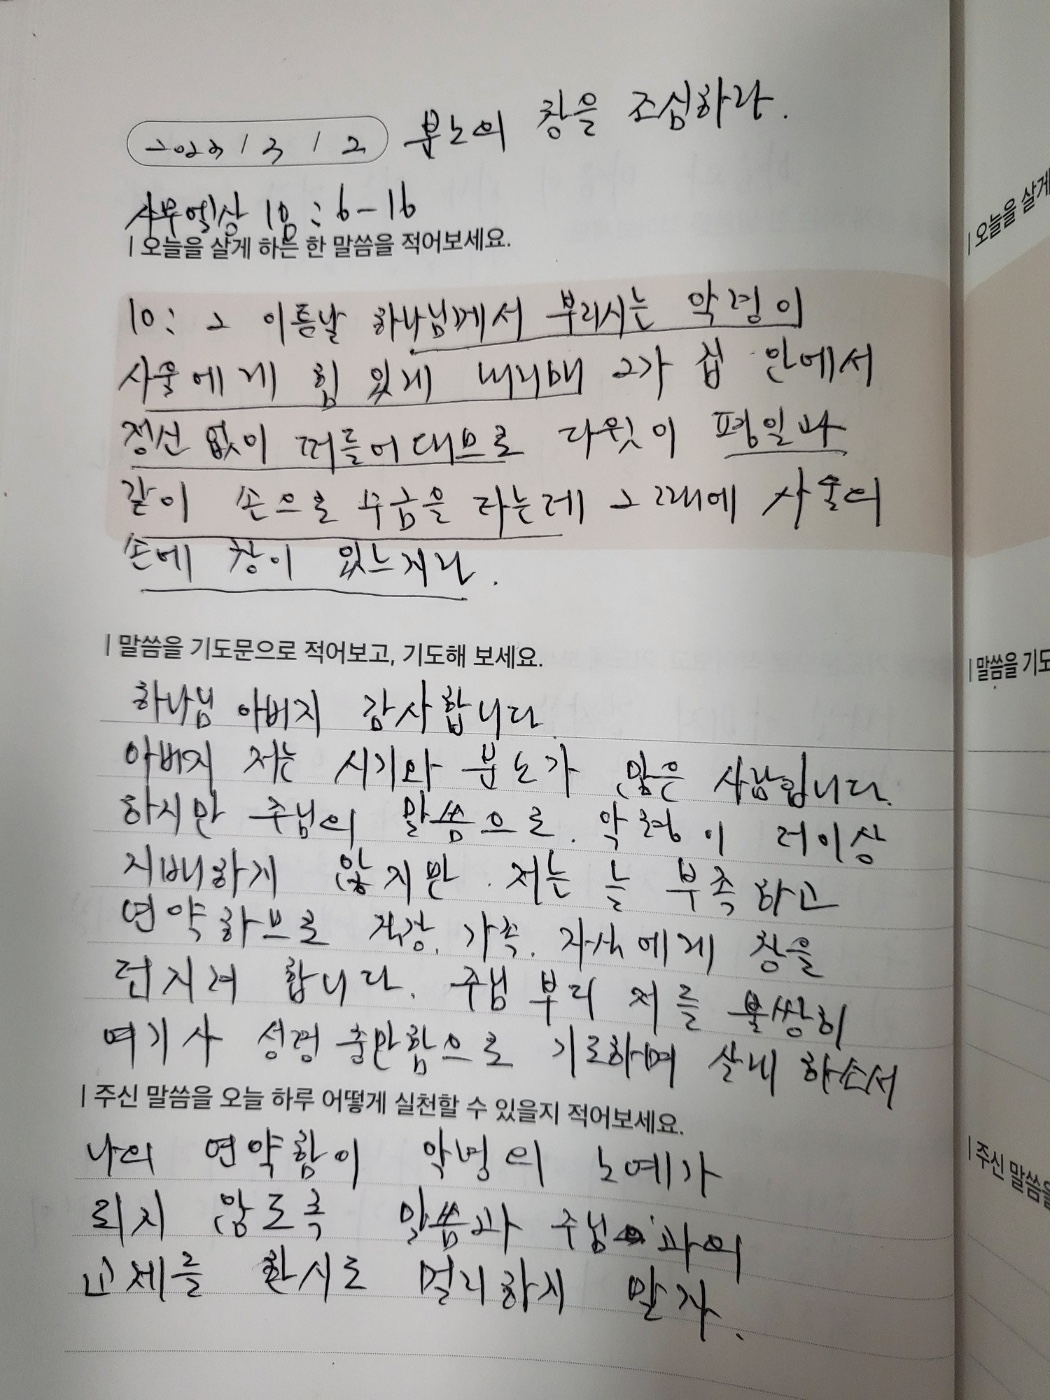 2023 / 3 / 2 분노의 창을 조심하라.
사무엘상 18 : 6-16
| 오늘을 살게 하는 한 말씀을 적어보세요.
10: 그 이튿날 하나님께서 부리시는 악령이
사울에게 힘 있게 내리매 그가 집 안에서
정신 없이 떠들어대므로 다윗이 평일과
같이 손으로 수금을 타는데 그 때에 사울의
손에 창이 있는지라.
| 말씀을 기도문으로 적어보고, 기도해 보세요.
하나님 아버지 감사합니다.
아버지 저는 시기와 분노가 많은 사람입니다.
하지만 주님의 말씀으로. 악령이 더이상
지배하게 않지만. 저는 늘 부족하고
연약하므로 직장, 가족, 자식에게 창을
던지려 합니다. 주님 부디 저를 불쌍히
여기사 성령 충만함으로 기도하며 살게 하소서
| 주신 말씀을 오늘 하루 어떻게 실천할 수 있을지 적어보세요.
나의 연약함이 악령의 노예가
되지 않도록 말씀과 주님과의
교제를 한시도 멀리하지 말자.
| 오늘을 살게
| 말씀을 기도
| 주신 말씀을